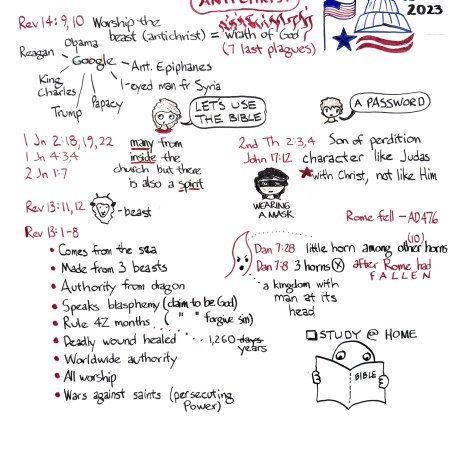 ANTICHRIST
2023
Rev 14:9,10 Worship the
beast (antichrist) = wrath of God
(7 last plagues)
Reagan
Obama
Google
King
Charles
Trump
Papacy
Ant. Epiphanes
1-eyed man fr Syria
LET'S USE
THE BIBLE
A PASSWORD
1 Jn 2:18,19,22 many from
1 Jn 4:3,4 inside the
2 Jn 1:7 church but there
is also a spirit
2nd Th 2:3,4 Son of perdition
John 17:12 character like Judas
with Christ, not like Him
WEARING
A MASK
Rev 13:11,12 -beast
Rome fell - AD476
Rev 13:1-8
• Comes from the sea
• Made from 3 beasts
• Authority from dragon
• Speaks blasphemy (claim to be God)
( " " forgive sin)
• Rule 42 months
• Deadly wound healed 1,260 days
years
• Worldwide authority
• All worship
• Wars against saints (persecuting
Power)
(10)
Dan 7:28 little horn among other horns
Dan 7:8 3 horns X after Rome had
FALLEN
a kingdom with
man at its
head
STUDY @ HOME
BIBLE